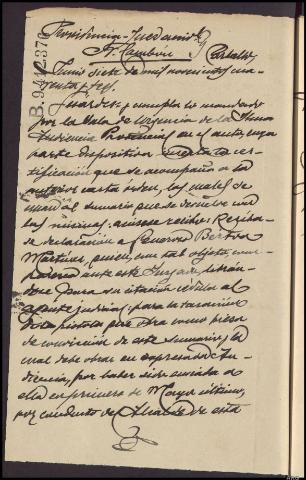 Providencia = Juez accidtal
Sr. Cambón
Junio siete de mil novecientos cua-
renta y tres.
Guárdese y cumpla lo mandado
por la Sala de Urgencia de la Iltma
Audiencia Provincial en el auto cuya
parte dispositiva inserta la cer-
tificación que se acompaña a la
anterior carta órden, las cuales se
unirán al sumario que se devuelve con
las mismas: acúsese recibo: Recíba-
se declaración a Genoveva
Martínez, quien, con tal objeto, com-
parecerá ante este Juzgado, librán-
dose para su citación cédula al
agente judicial: para la tasación
de la pistola que obra como pieza
de convicción de este sumario, la
cual debe obrar en expresada Au-
diencia, por haber sido enviada a
ella en primero de Mayo último,
por conducto del Alcalde de esta
B.9.412.376